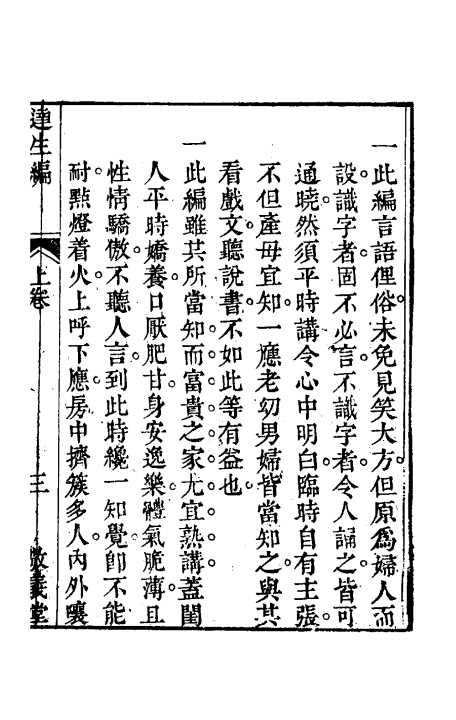 一此編言語俚俗未免見笑大方但原爲婦人而
設識字者固不必言不識字者令人誦之皆可
通曉然須平時講令心中明白臨時自有主張
不但產毋宜知一應老幼男婦皆當知之與其
看戲文聽說書不如此等有益也
一此編雖共所當知而富貴之家尤宜熟講蓋閨
人平時嬌養口厭肥甘身安逸樂體氣脆薄且
性情驕傲不聽人言到此時纔一知覺卽不能
耐點燈着火上呼下應房中擠簇多人內外嚷
達生編
上卷
三
敬義堂